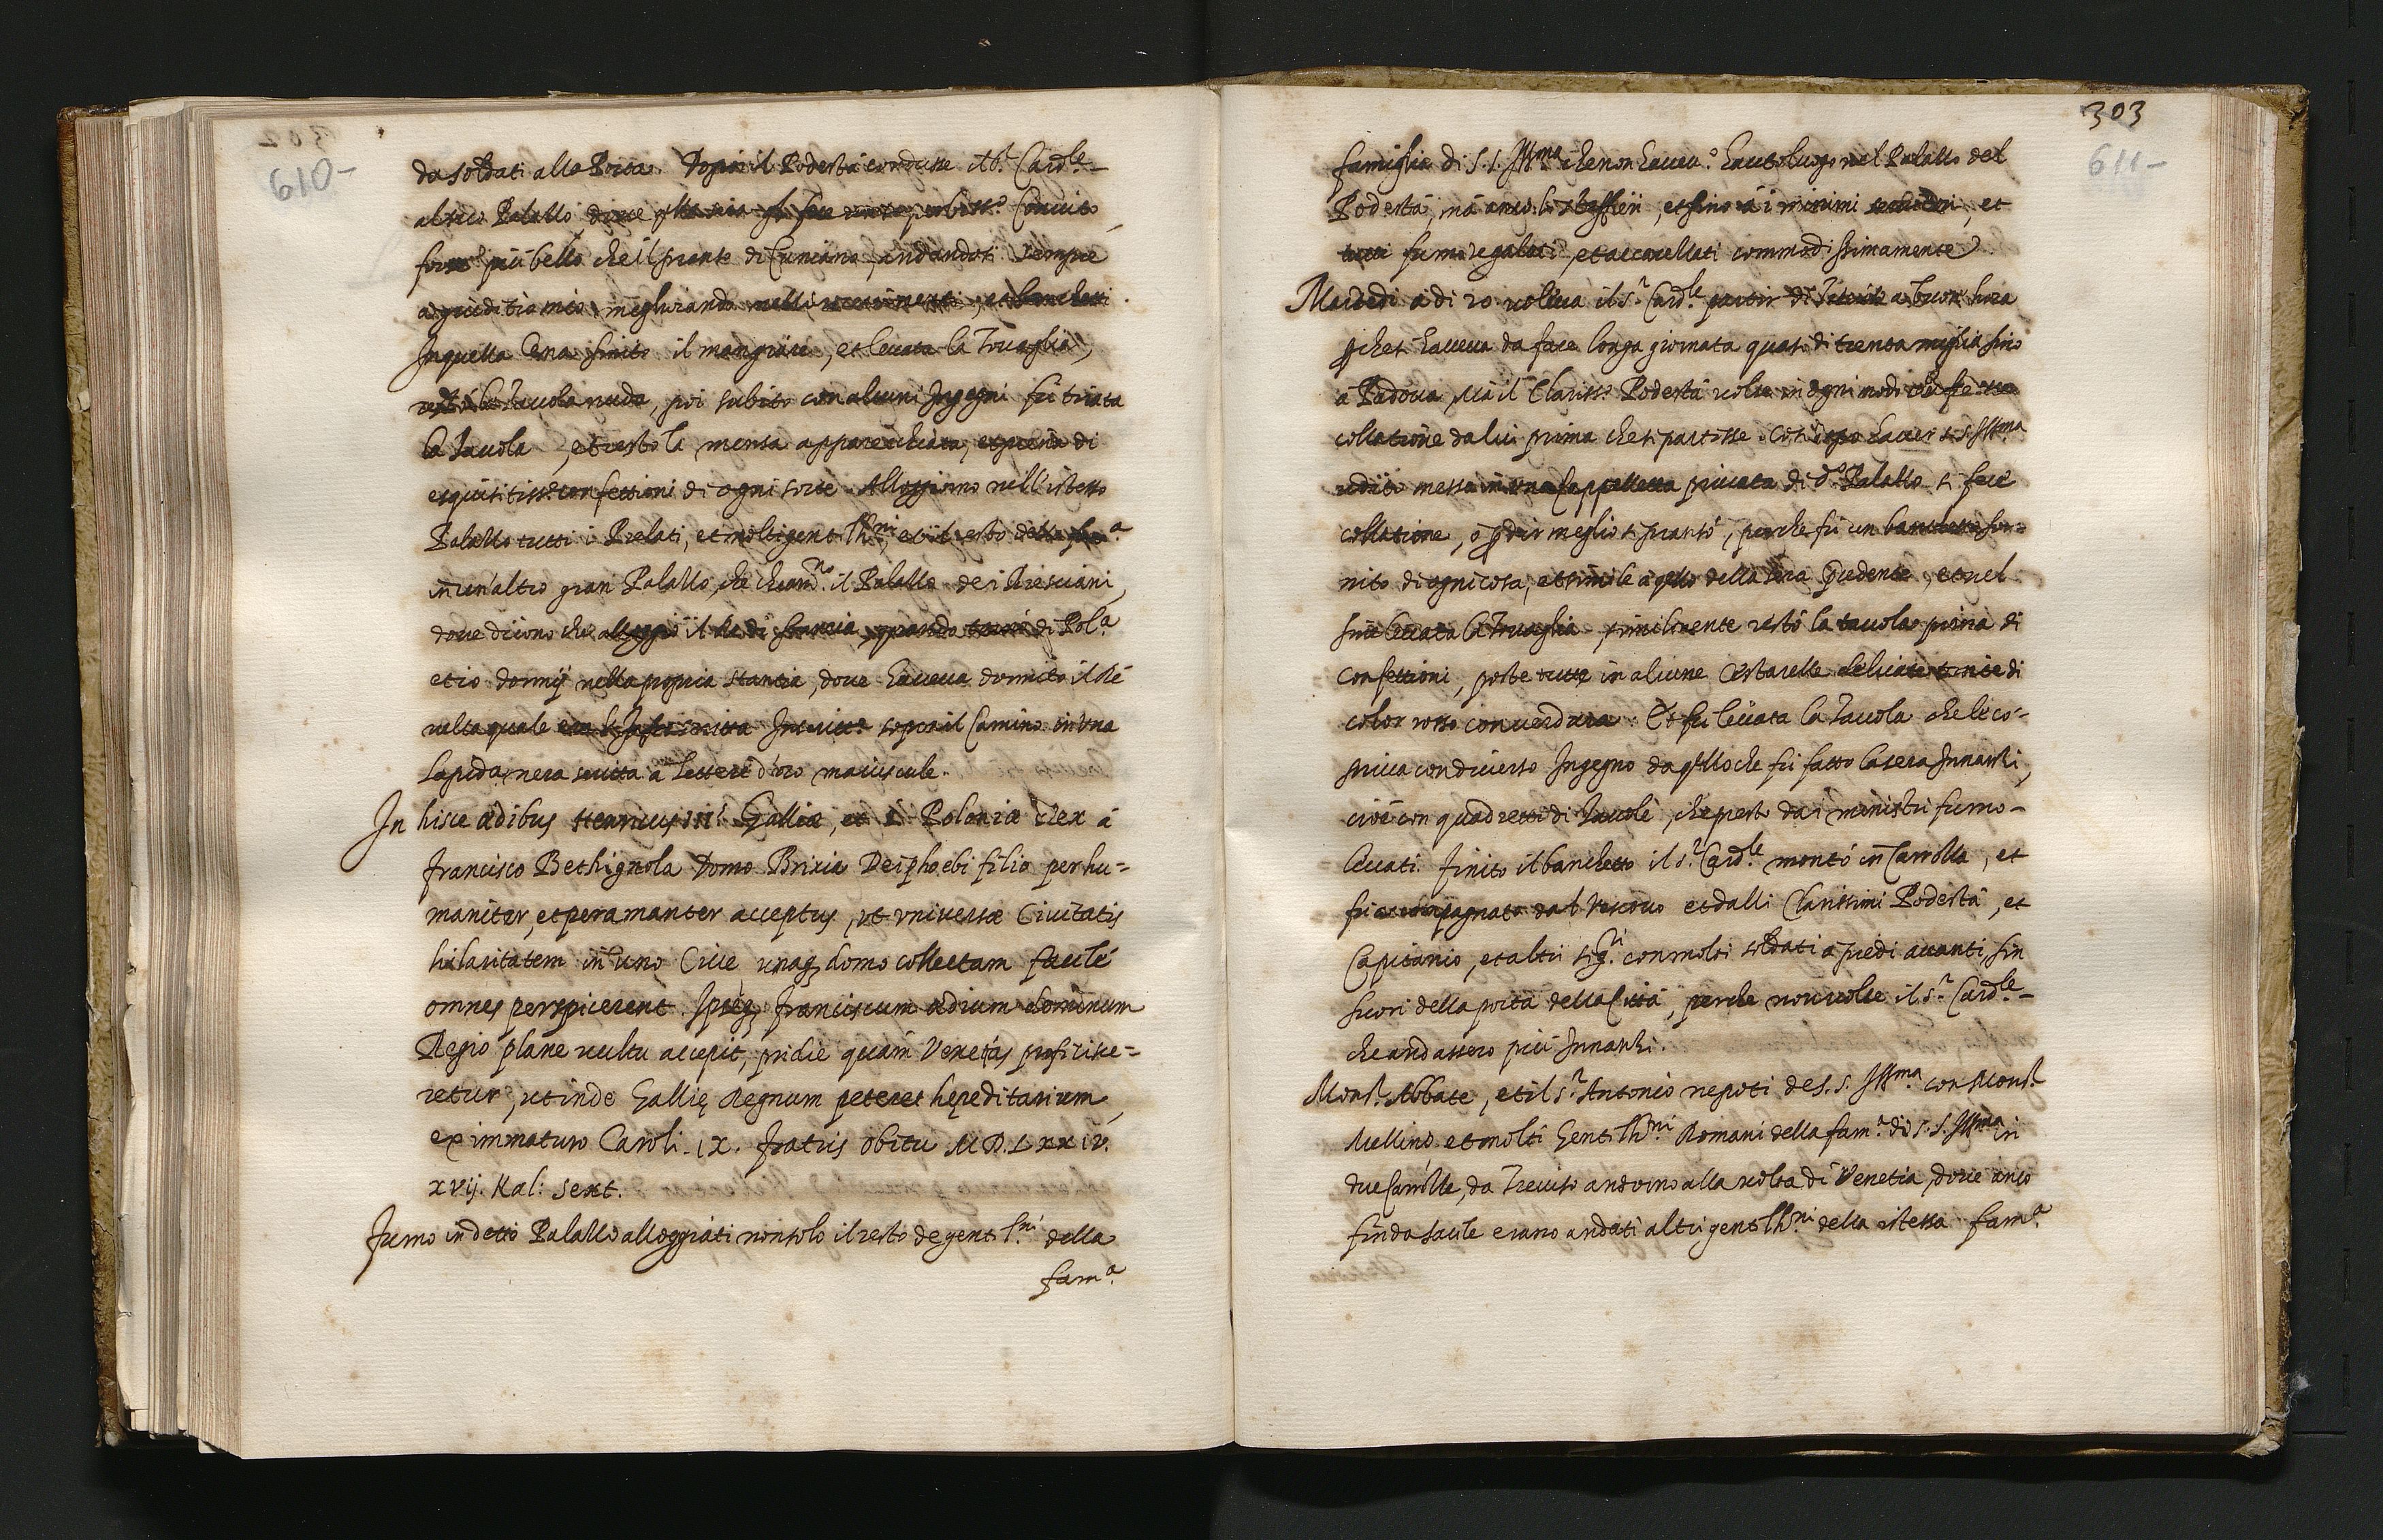 610-
da soldati alla Porta. Dopoi il Podestà condusse il s.r Card.le
al suo Palazzo, dove q.lla sera gli fece un superbiss.o Convito,
forse più bello che il pranso di Cunians, andandosi sempre
a giuditio mio megliorando nelli ricevimenti, et banchetti.
In quella Cena finito il mangiare, et levata la Tovaglia,
restò la Tavola nuda, poi subito con alcuni Ingegni fu tirata
la Tavola, et restò la mensa apparecchiata, et piena di
esquisitiss.e confettioni di ogni sorte. Alloggiorno nell'istesso
Palazzo tutti i Prelati, et molti gentilh.ni, et il resto della fam.a
in un'altro gran Palazzo, che chiam.no il Palazzo dei Bresciani,
dove dicono che alloggiò il Re di Francia, quando tornò di Pol.a
et io dormij nella propria stantia, dove haveva dormito il Ré
nella quale era l'Infrascritta Inscritt.e sopra il Camino in una
Lapida nera scritta à Lettere d'oro maiuscule.
In hisce ædibus Henricus III. Galliæ, et I. Poloniæ Rex à
Francisco Bethignola Domo Brixia Deiphoebi filio perhu=
maniter, et peramanter acceptus, ut universæ Civitatis
hilaritatem in uno Cive unaq. domo collectam facilè
omnes perspicerent. Ipseq. Franciscum ædium dominum
Regio planè vultu accepit, pridie quàm Venetias proficisce=
retur, ut inde Gallię Regnum peteret hęreditarium,
ex immaturo Caroli. IX. Fratris obitu M D. L XX IV.
XVij. Kal: Sext.
Furno in detto Palazzo alloggiati non solo il resto de gentilh.ni della
fam.a
303
611-
famiglia di S. S. Ill.ma che non havev.o havuto luogo nel Palazzo del
Podestà, mà anco li staffieri, et sino à i minimi servitori, et
tutti furno regalati, et accarezzati commodissimamente.
Martedi à di 20 voleva il s.r Card.le partir di Treviso a buon hora
perche haveva da fare longa giornata quasi di trenta miglia sino
à Padova, Mà il Clariss.o Podestà volse in ogni modo che facesse
collatione da lui prima che si partisse. Così dopo haver S. S. Ill.ma
udito messa in una Cappelletta privata di d.o Palazzo si fece
collatione, o p dir meglio si pransò, perche fù un banchetto for=
nito di ogni cosa, et simile à q.llo della sera p.cedente, et nel
fine levata la Tovaglia similmente restò la tavola piena di
Confettioni, poste tutte in alcune Cestarelle delicate tinte di
color rosso con verdura. Et fu levata la Tavola che le co=
priva con diverso Ingegno da q.llo che fù fatto la sera Innanzi,
cioè con quadretti di Tavole, che presto da i ministri furno
levati. Finito il banchetto il s.r Card.le montò in Carrozza, et
fù accompagnato dal Vescovo et dalli Clarissimi Podestà, et
Capitanio, et altri Sig.ri con molti soldati à piedi avanti, sin
fuori della porta della Città, perche non volse il s.r Card.le
che andassero più Innanzi.
Mons.r Abbate, et il s.r Antonio nepoti de S. S. Ill.ma con Mons.r
Mellino, et molti Gentilh.ni Romani della fam.a di S. S. Ill.ma in
due Carrozze, da Treviso andorno alla volta di Venetia, dove anco
fin da Sacile erano andati altri gentilh.ni della istessa fam.a